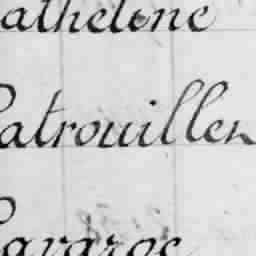 atheline
Patrouiller
avaroc